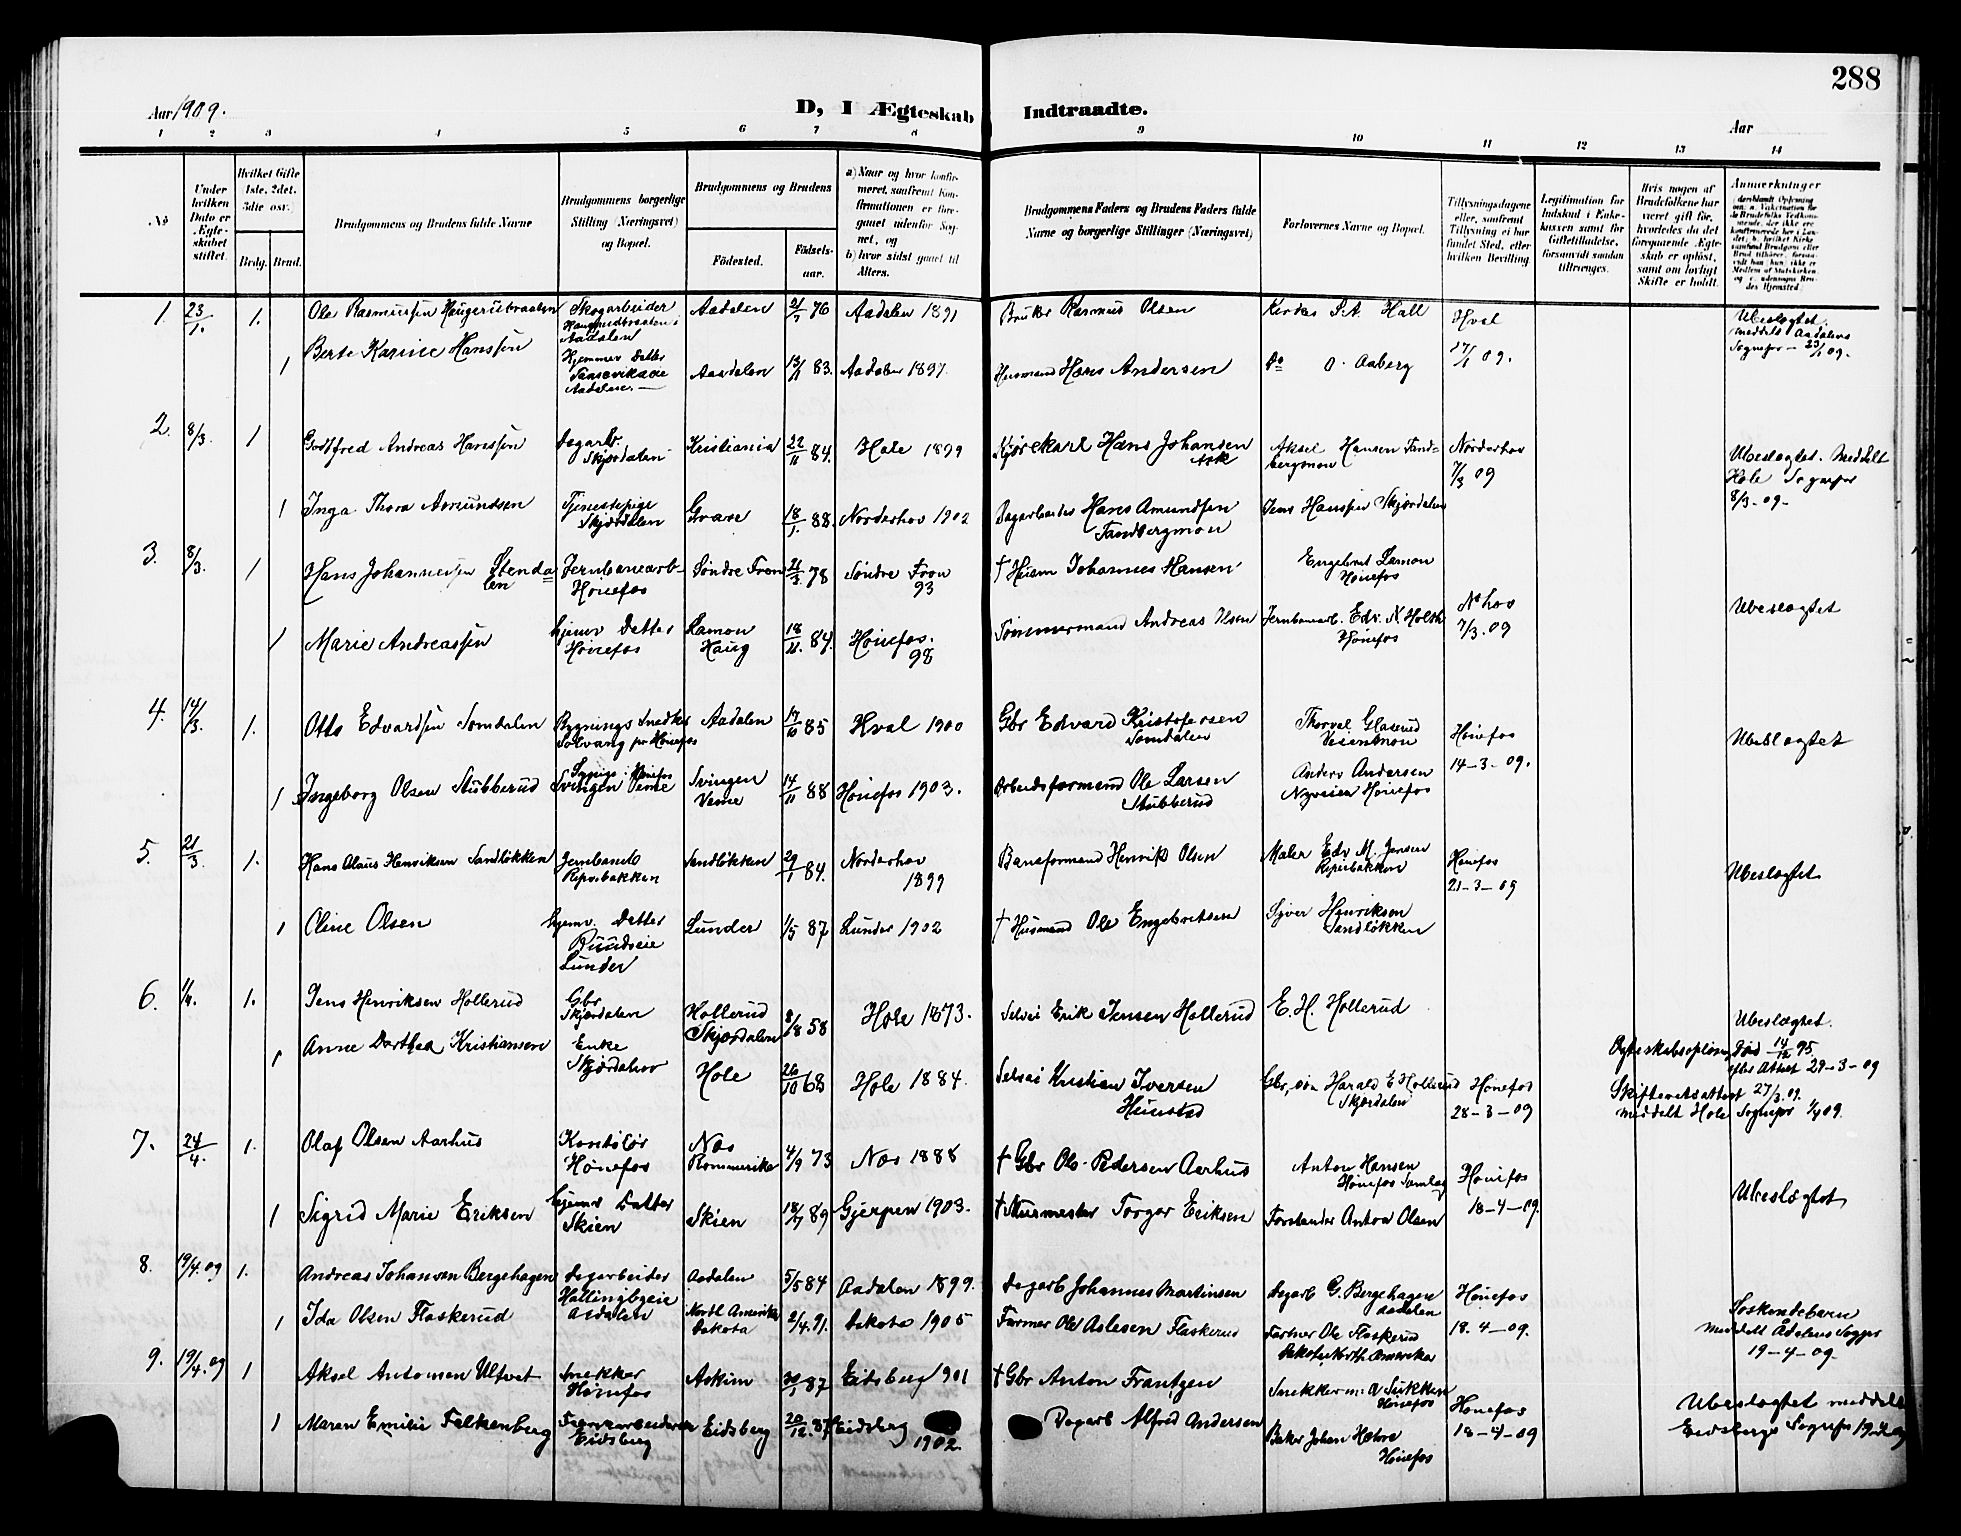 288
Aar 1909.
D, I Ægteskab Indtraadte.
Aar
1 2 3 4 5 6 7 8 9 10 11 12 13 14
No
Under hvilken Dato er Ægteskabet stiftet.
Hvilket Gifte 1ste, 2det, 3die osv.
Brdg. Brud.
Brudgommens og Brudens fulde Navne
Brudgommens borgerlige Stilling (Næringsvei) og Bopæl.
Brudgommens og Brudens
Fødested.
Fødselsaar.
a) Naar og hvor konfirmeret, saafremt Konfirmationen er foregaaet udenfor Sognet, og
b) hvor sidst gaaet til Alters.
Brudgommens Faders og Brudens Faders fulde Navne og borgerlige Stillinger (Næringsvei)
Forlovernes Navne og Bopæl.
Tillysningsdagene eller, saafremt Tillysning ei har fundet Sted, efter hvilken Bevilling
Legitimation for Indskud i Enkekassen samt for Giftetilladelse, forsaavidt saadan tiltrænges.
Hvis nogen af Brudefolkene har været gift før, hvorledes da det foregaaende Ægteskab er opløst, samt om lovligt Skifte er holdt.
Anmærkninger
1. 23/1. 1. Ole Rasmussen Haugerudbraaten Skogarbeider Aadalen Aadalen 21/7 76 Aadalen 1891 Bruker Rasmus Olsen S. A. Hall Hval 17/1 09. Ubeslægtet. meddelt Aadalens Sognepr 23/1 09.
1 Berte Karine Hanssen Hjemmev. Datter Aadalen Aadalen 13/11 83. Aadalen 1897. Husmand Hans Andersen Do O. Aaberg
2. 8/3. 1 Gottfred Andreas Hanssen Dagarb. Skjørdalen Kristiania 22/11 84. Hole 1899 Kjørekarl Hans Johansen Ask Aksel Hansen Tandbergmoen Norderhov 7/3 09 Ubeslægtet. Meddelt Hole Sognepr 8/3-09-
1 Inga Thora Amundsen Tjenestepige Skjørdalen Gran 18/1 88. Norderhov 1902 Dagarbeider Hans Amundsen Tandbergmoen Jens Hanssen Skjørdalen
3. 8/3. 1 Hans Johannessen Stendalen Jernbanearb. Hønefos Søndre Fron 21/3 78 Søndre Fron 93 † Husm Johannes Hansen Engebret Lamon Hønefos Nohov 7/3. 09 Ubeslægtet
1 Marie Andreassen hjemv Datter Hønefos Lamon Haug 18/11 84. Hønefos. 98 Tømmermand Andreas Olsen Jernbanearb. Edv. N. Holth Hønefos
4. 14/3. 1. Otto Edvardsen Somdalen Bygnings Snedker Solvang pr Hønefos Aadalen 17/10 85 Hval 1900 Gbr Edvard Kristofersen Somdalen Thorval Glaserud Vesentmoen Hønefos 14-3-09. Ubeslægtet
1 Ingeborg Olsen Stubberud Sypige Hønefos Svingen Veme Svingen Veme 14/11 88 Hønefos 1903. Arbeidsformand Ole Larsen Stubberud Anders Andersen Nyveien Hønefos
5. 21/3 1. Hans Olaus Henriksen Sandløkken Jernbanearb Riperbakken Sandløkken 29/1 84. Norderhov 1899 Baneformand Henrik Olsen Maler Edv M. Jensen Riperbakken Hønefos 21-3-09 Ubeslægtet
1 Oline Olsen hjemv. Datter Ruudseie Lunder Lunder 1/5 87 Lunder 1902 † Husmand Ole Engebretsen Syver Henriksen Sandløkken
6. 1/4. 1. Jens Henriksen Hollerud Gbr Skjørdalen Hollerud Skjørdalen 8/8 58 Hole 1873. Selvei Erik Jensen Hollerud E. H. Hollerud Ubeslægtet.
1 Anne Dorthea Kristiansen Enke Skjørdalen Hole 26/10 68 Hole 1884. Selvei Kristian Iversen Hunstad Gbr, søn Harald E Hollerud Skjørdalen Hønefos 28-3-09 Ægteskabsopløsn. Død 14/12 95 efter Attest 29-3-09 Skifteretsattest 27/3. 09. meddelt Hole Sognepr 1/4 09.
7. 24/4. 1. Olaf Olsen Aarhus Kontolør Hønefos Nes Romerike 4/9 73 Nes 1888 † Gbr Ole Pedersen Aarhus Anton Hansen Hønefos Samlag Hønefos 18-4-09. Ubeslægtet
1 Sigrid Marie Eriksen hjemv Datter Skien Skien 18/7 89 Gjerpen 1903. † Murmester Torger Eriksen Forstander Anton Olsen
8. 19/4. 09 1. Andreas Johansen Bergehagen Dagarbeider Hallingbyeie Aadalen Aadalen 5/5 84 Aadalen 1899. Dagarb Johannes Martinsen Dagarb G. Bergehagen Aadalen Hønefos 18. 4-09. Søskendebarn meddelt Ådalens Sognepr 19-4-09.
1 Ida Olsen Flaskerud Nordl Amerika Dakota 2/4. 91. Dakota 1905 Farmer Ole Aslesen Flaskerud Farmer Ole Flaskerud Dakota North Amerika
9. 19/4. 09 1 Aksel Antonsen Ultvet Snekker Hønefos Askim 30/1 87 Eidsberg 1901 † Gbr Anton Frantzen Snekkerm. Hønefos Hønefos 18-4-09 Ubeslægtet meddelt Eidsbergs Sognepr 19-4-09
1 Maren Emilie Falkenberg Eidsberg Eidsberg 20/12. 87 Eidsberg 1902. Dagarb Alfred Andersen Baker Johan Hønefos